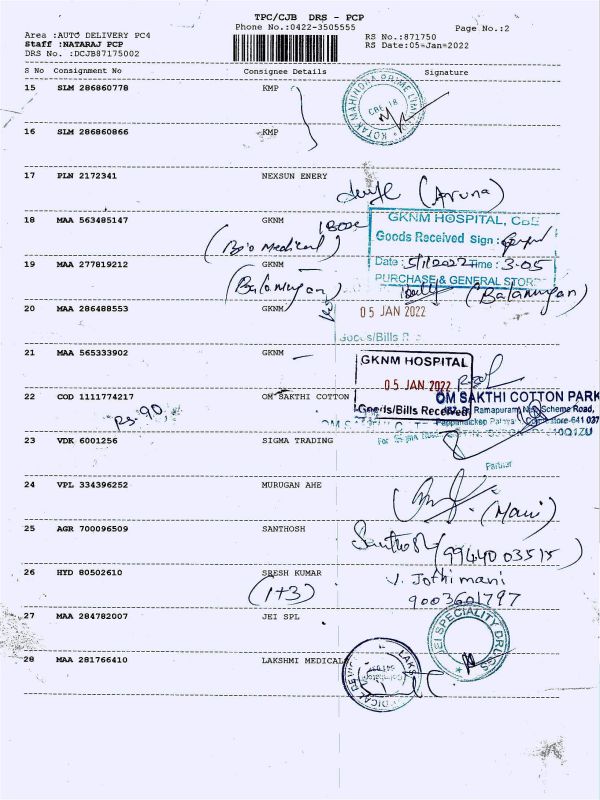 TPC/CJB DRS - PCP
Phone No.:0422-3505555
Page No.:2
Area :AUTO DELIVERY PC4
RS No.:871750
Staff :NATARAJ PCP
RS Date:05-Jan-2022
DRS No. :DCJB87175002
S No Consignment No Consignee Details Signature
15 SLM 286860778 KMP
KOTAK MAHINDRA PRIME LIMITED
CBE 18
16 SLM 286860866 KMP
17 PLN 2172341 NEXSUN ENERY
(Aruna)
18 MAA 563485147 GKNM
1 Box
GKNM HOSPITAL, CBE
(Bio Medical)
Goods Received Sign :
19 MAA 277819212 GKNM
Date : 5/1/2022 Time : 3-05
(Balamurugan)
PURCHASE & GENERAL STORE
(Balamurugan)
20 MAA 286488553 GKNM
05 JAN 2022
Goods/Bills Re
21 MAA 565333902 GKNM
GKNM HOSPITAL
05 JAN 2022
Goods/Bills Received
22 COD 1111774217 OM SAKTHI COTTON
Rs. 90
OM SAKTHI COTTON PARK
Ramapuram, Scheme Road,
641 037
23 VDK 6001256 SIGMA TRADING
For Sigma
Partner
24 VPL 334396252 MURUGAN AHE
(Mani)
25 AGR 700096509 SANTHOSH
Santhosh (9944003515)
26 HYD 80502610 SRESH KUMAR
(1+3)
V. Jothimani
9003601797
27 MAA 284782007 JEI SPL
JEI SPECIALITY DRUGS
28 MAA 281766410 LAKSHMI MEDICAL